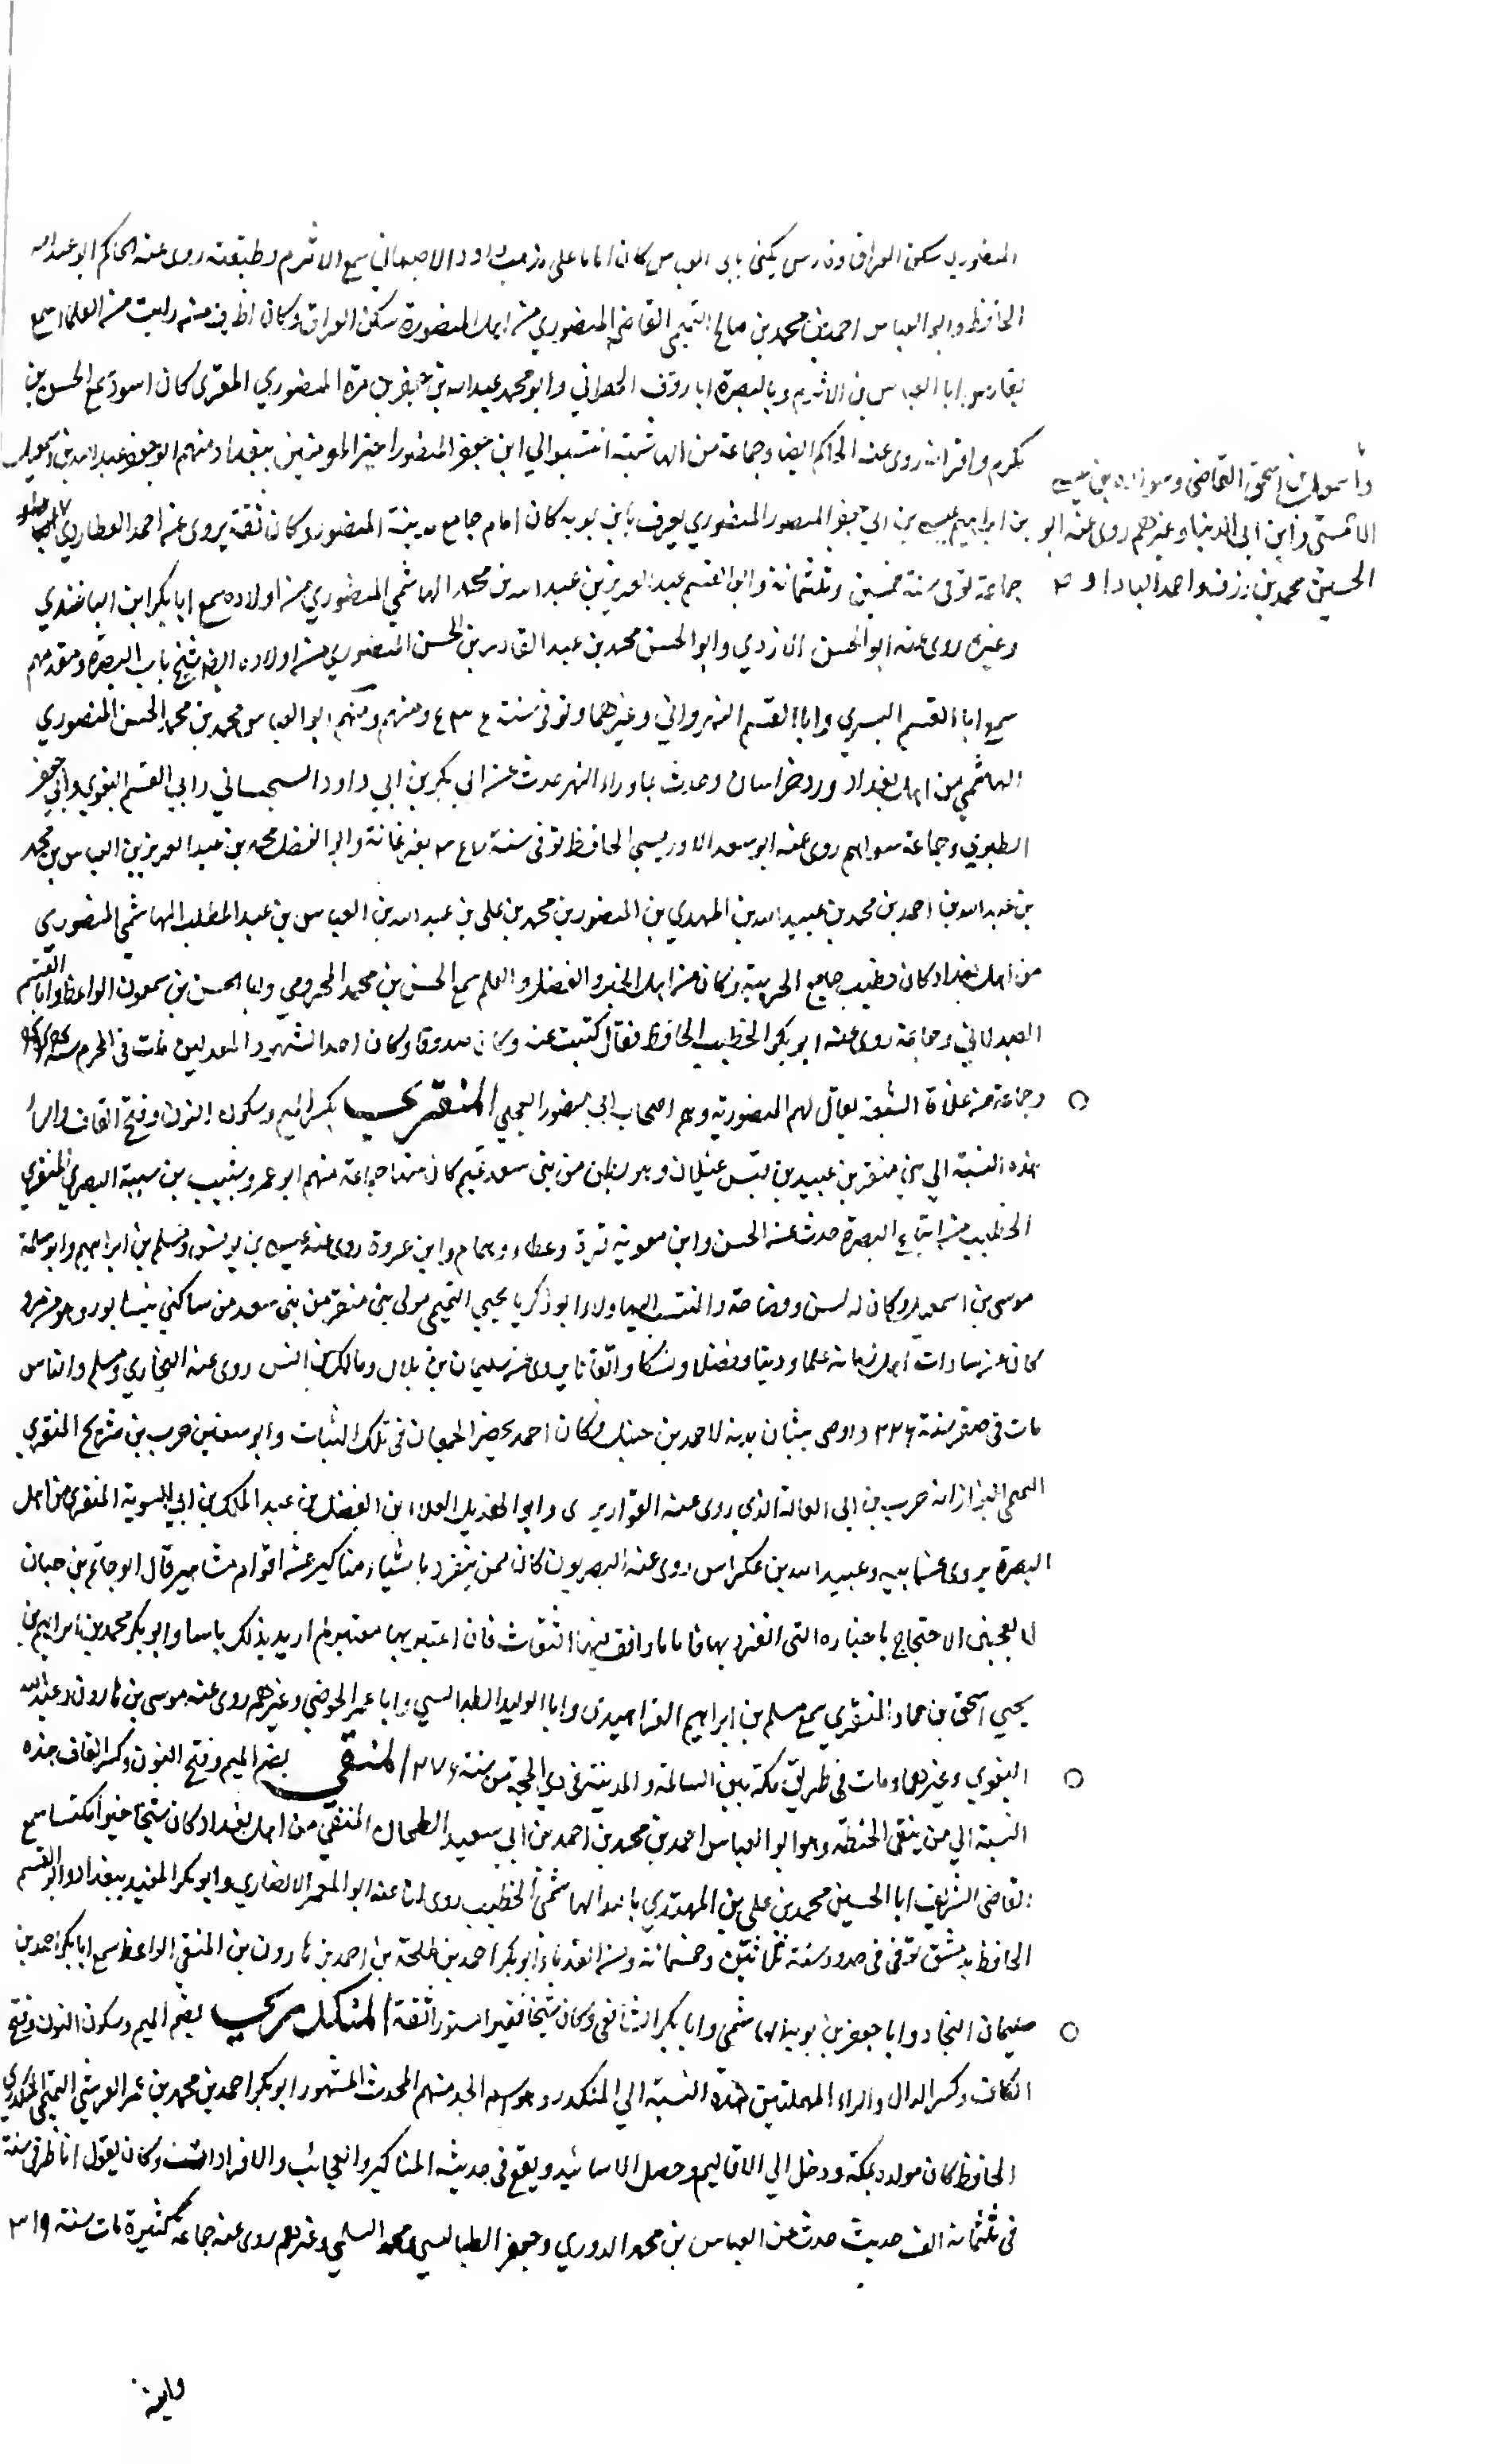 المنصوري سكن العراق وفارس يكنى بابي العباس كان اماما على مذهب داود الاصبهاني سمع الاثرم وطبقته روى عنه الحاكم ابو عبد الله
الحافظ وابو العباس احمد بن محمد بن صالح التميمي القاضي المنصوري من اهل المنصورة سكن العراق وكان اظرف من رايت من العلماء سمع
بفارس ابا العباس بن الاثرم وبالبصرة ابا روق الهزاني وابو محمد عبد الله بن جعفر بن مرة المنصوري المقرى كان اسود سمع الحسن بن
مكرم واقرانه روى عنه الحاكم ايضا وجماعة من الهاشمية انتسبوا الي ابي جعفر المنصور امير المومنين ببغداد منهم ابو جعفر عبد الله بن اسمعيل
بن ابراهيم بن عيسى بن ابي جعفر المنصور المنصوري يعرف بابن بويه كان امام جامع مدينة المنصور وكان ثقة يروى عن احمد العطاردي
واسمعيل بن اسحق القاضي وسوادة بن عيسى
الهاشمي وابن ابي الدنيا وغيرهم روى عنه ابو
الحسين محمد بن رزق واحمد البادا و
جماعة توفى سنة خمسين وثلثمائة وابو القسم عبد العزيز بن عبد الله بن محمد الهاشمي المنصوري من اولاده سمع ابا بكر ابن الباغندي
وغيره روى عنه ابو الحسن الازدي وابو الحسن محمد بن عبد القادر بن الحسن المنصوري من اولاده ايضا شيخ باب البصرة ومقدمهم
سمع ابا القسم البسري وابا القسم المهرواني وغيرهما وتوفى سنة ومنهم ومنهم ابو العباس محمد بن محمد الحسن المنصوري
الهاشمي من اهل بغداد ورد خراسان وحدث بما وراء النهر حدث عن ابي بكر بن ابي داود السجستاني وابي القسم البغوي وابي جعفر
الطبري وجماعة سواهم روى عنه ابو سعد الادريسي الحافظ توفى سنة ٣٤٧ بفرغانة وابو الفضل محمد بن عبد العزيز بن العباس بن محمد
بن عبد الله بن احمد بن محمد بن عبيد الله بن المهدي بن المنصور بن محمد بن على بن عبد الله بن العباس بن عبد المطلب الهاشمي المنصورى
من اهل بغداد كان خطيب جامع الحربية وكان من اهل الخير والفضل والعلم سمع الحسن بن محمد المخرومي وابا الحسين بن سمعون الواعظ وابا القسم
الصيدلاني وجماعة روى عنه ابو بكر الخطيب الحافظ فقال كتبت عنه وكان صدوقا وكان احد الشهود المعدلين مات فى المحرم سنة
وجماعة من غلاة الشيعة يقال لهم المنصورية وهم اصحاب ابي منصور العجلي المنقري بكسر الميم وسكون النون وفتح القاف والراء
هذه النسبة الي بني منقر بن عبيد بن قيس عيلان وهو بطن من بني سعد تميم كان منها جماعة منهم ابو عمرو شبيب بن شيبة البصري المنقري
الخطيب من اتباع البصرة حدث عن الحسن وابن معوية قرة وعطاء وهمام وابن عروة روى عنه عيسى بن يونس ومسلم بن ابراهيم وابو سلمة
موسى بن اسمعيل وكان له لسن وفصاحة والمنتسب اليها ولاء ابو زكريا يحيي التميمي مولى بني منقر من بني سعد من ساكني نيسابور وهو من مرو
كان من سادات اهل زمانه علما ودينا وفضلا ونسكا واتقانا يروى عن سليمان بن بلال ومالك بن انس روى عنه البخاري ومسلم والناس
مات في صفر سنة ٢٢٦ واوصى بثياب بدنه لاحمد بن حنبل وكان احمد يحضر الجمعات في تلك الثياب وابو سفين حرب بن شريح المنقري
التميمي البزاز انه حرب بن ابي العالية الذي روى عنه القواريرى وابو الهذيل العلاء بن الفضل بن عبد الملك بن ابي السوية المنقري من اهل
البصرة يروى عن ابيه وعبيد الله بن عكراش روى عنه البصريون كان ممن ينفرد باشياء مناكير عن اقوام مشاهير قال ابو حاتم بن حبان
لا يعجبني الاحتجاج باخباره التي انفرد بها فاما ما وافق فيها الثقات فان اعتبر بها معتبر لم ار بذلك باسا وابو بكر محمد بن ابراهيم بن
يحيي اسحق بن حماد المنقري سمع مسلم بن ابراهيم الفراهيدى وابا الوليد الطيالسي وابا عمر الحوضي وغيرهم روى عنه موسى بن هارون وعبد الله
البغوي وغيرهما ومات في طريق مكة بين السالمة والمدينة في ذي الحجة من سنة ٢٧٦ المنقي بضم الميم وفتح النون وكسر القاف هذه
النسبة الي من ينقي الحنطة وهو ابو العباس احمد بن محمد بن احمد بن ابي سعيد الطحان المنقي من اهل بغداد كان شيخا خيرا مكتسبا سمع
القاضي الشريف ابا الحسين محمد بن علي بن المهتدي بالله الهاشمي الخطيب روى لنا عنه ابو المعمر الانصاري وابو بكر المفيد ببغداد وابو القسم
الحافظ بدمشق توفى في حدود سنة ثلاثين وخمسمائة ومن القدماء ابو بكر احمد بن طلحة بن احمد بن هارون بن المنقي الواعظ سمع ابا بكر احمد بن
سليمان النجاد وابا جعفر بن بويه الهاشمي وابا بكر الشافعي وكان شيخا فقيرا مستورا ثقة المنكدري بضم الميم وسكون النون وفتح
الكاف وكسر الدال والراء المهملتين هذه النسبة الي المنكدر وهو اسم الجد منهم المحدث المشهور ابو بكر احمد بن محمد بن عمر القرشي التيمي المنكدري
الحافظ كان مولده بمكة ودخل الي الاقاليم وحصل الاسانيد ويقع في حديثه المناكير والعجائب والافرادات وكان يقول اناظر في سنة
في ثلثمائة الف حديث حدث عن العباس بن محمد الدوري وجعفر الطيالسي ومحمد السلمي وغيرهم روى عنه جماعة كثيرة مات سنة ٣١٩
وابنه